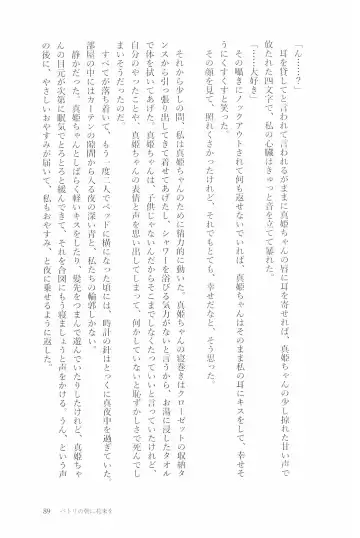 「ん……？」
耳を貸してと言われて言われるがままに真姫ちゃんの唇に耳を寄せれば、真姫ちゃんの少し掠れた甘い声で
放たれた四文字で、私の心臓はきゅっと音を立てて暴れた。
「……大好き」
その囁きにノックアウトされて何も返せないでいれば、真姫ちゃんはそのまま私の耳にキスをして、幸せそ
うにくすくすと笑った。
その顔を見て、照れくさかったけれど、それでもとても、幸せだなと、そう思った。
それから少しの間、私は真姫ちゃんのために精力的に動いた。真姫ちゃんの寝巻きはクローゼットの収納タ
ンスから引っ張り出してきて着せてあげたし、シャワーを浴びる気力がないと言うから、お湯に浸したタオル
で体を拭いてあげた。真姫ちゃんは、子供じゃないんだからそこまでしなくたっていいと言っていたけれど、
自分のやったことや、真姫ちゃんの表情と声を思い出してしまって、何かしていないと恥ずかしさで死んでし
まいそうだったのだ。
すべてが落ち着いて、もう一度二人でベッドに横になった頃には、時計の針はとっくに真夜中を過ぎていた。
部屋の中にはカーテンの隙間から入る夜の深い青と、私たちの輪郭しかない。
静かだった。真姫ちゃんとしばらく軽いキスをしたり、髪先をつまんで遊んでいたりしたけれど、真姫ちゃ
んの目元が次第に眠気でとろとろと緩んできて、それを合図にもう寝ましょうと声をかける。うん、という声
の後に、やさしいおやすみが届いて、私もおやすみ、と夜に乗せるように返した。
89